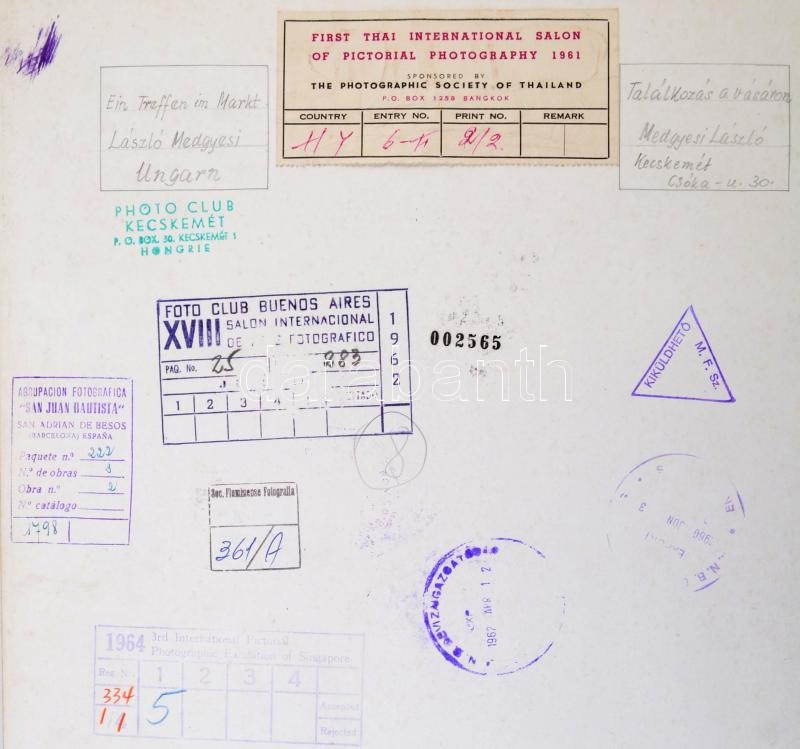 FIRST THAI INTERNATIONAL SALON
OF PICTORIAL PHOTOGRAPHY 1961
SPONSORED BY
THE PHOTOGRAPHIC SOCIETY OF THAILAND
P.O. BOX 1258 BANGKOK
COUNTRY ENTRY NO. PRINT NO. REMARK
HY 2/2
Ein Treffen im Markt
László Medgyesi
Ungarn
Találkozás a vásáron
Medgyesi László
Kecskemét
Csóka-u. 30.
PHOTO CLUB
KECSKEMÉT
P. O. BOX. 30. KECSKEMÉT 1
HONGRIE
FOTO CLUB BUENOS AIRES
XVIII SALON INTERNACIONAL
DE FOTOGRAFICO
PAQ. No. 25 983
1 2 3 4
1962
002565
KIKÜLDHETŐ
M. F. Sz.
darabanth
AGRUPACION FOTOGRAFICA
"SAN JUAN BAUTISTA"
SAN ADRIAN DE BESOS
(BARCELONA) ESPAÑA
Paquete n.º 222
N.º de obras 3
Obra n.º 2
N.º catálogo
1798
8
Soc. Fluminense Fotografia
361/A
N.B. DEVIZAIGAZGATÓSÁG
1962 APR 12
N.B.
JUN
1964 3rd International Pictorial
Photographic Exhibition of Singapore.
Reg. N. 1 2 3 4
334
1/1 5
Accepted
Rejected